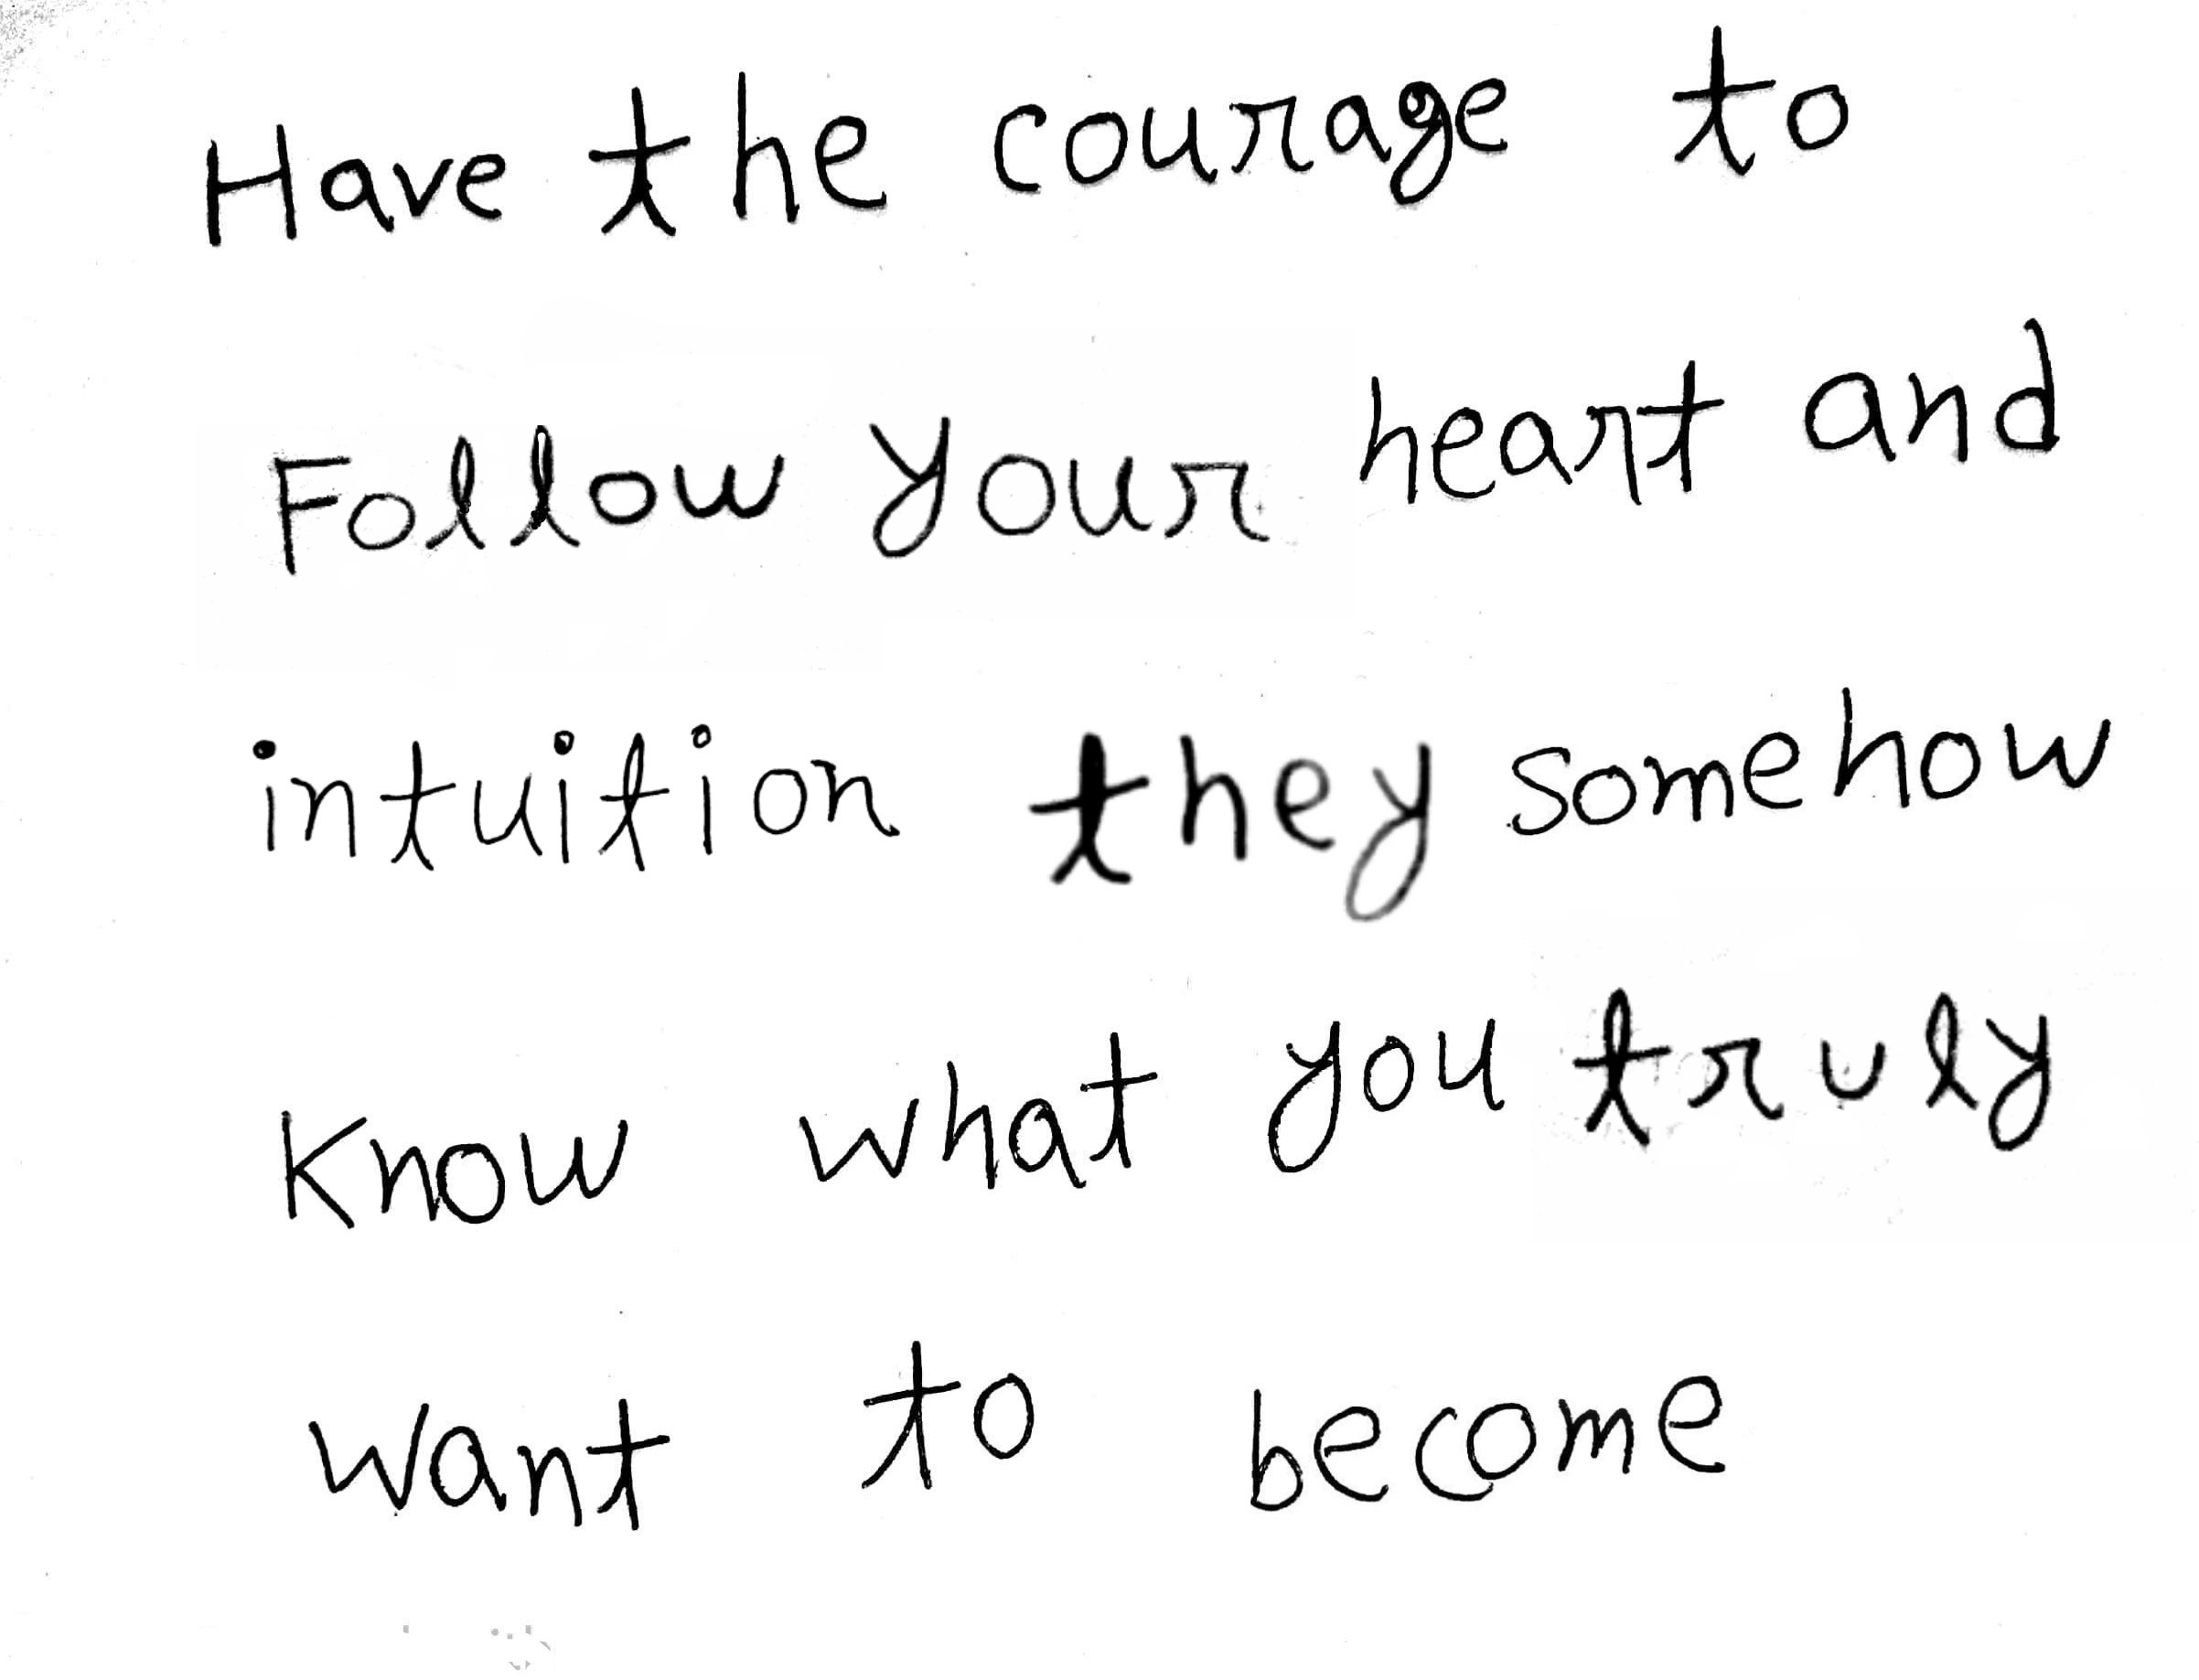 Have the courage to
Follow your heart and
intuition they somehow
Know what you truly
want to become